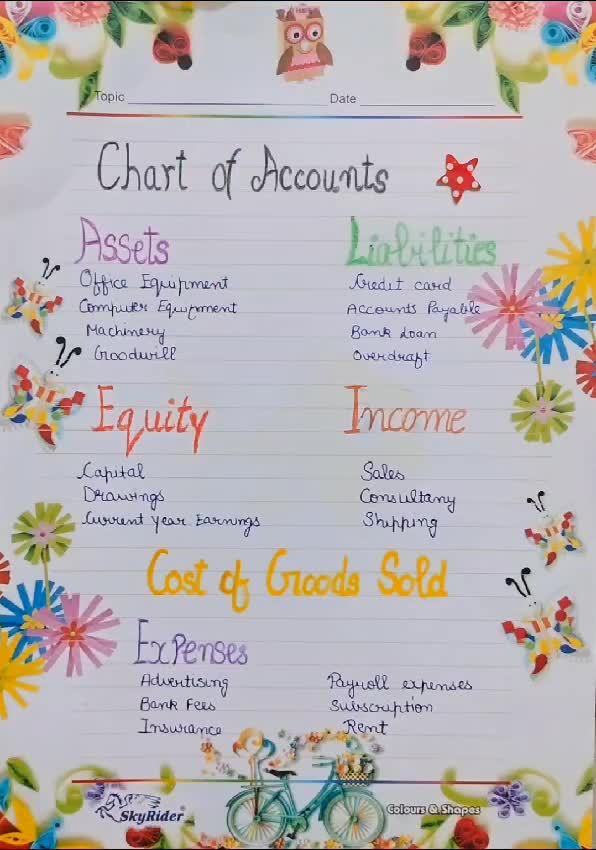 Topic
Date
Chart of Accounts
Assets
Office Equipment
Computer Equipment
Machinery
Goodwill
Liabilities
Credit card
Accounts Payable
Bank Loan
Overdraft
Equity
Capital
Drawings
Current year Earnings
Income
Sales
Consultany
Shipping
Cost of Goods Sold
Expenses
Advertising
Bank Fees
Insurance
Payroll expenses
Subscription
Rent
SkyRider
Colours & Shapes